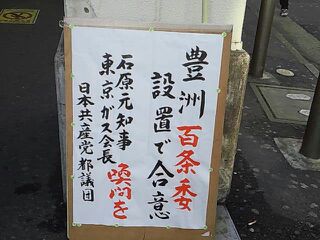 豊洲百条委
設置で合意
石原元知事
東京ガス会長
喚問を
日本共産党都議団